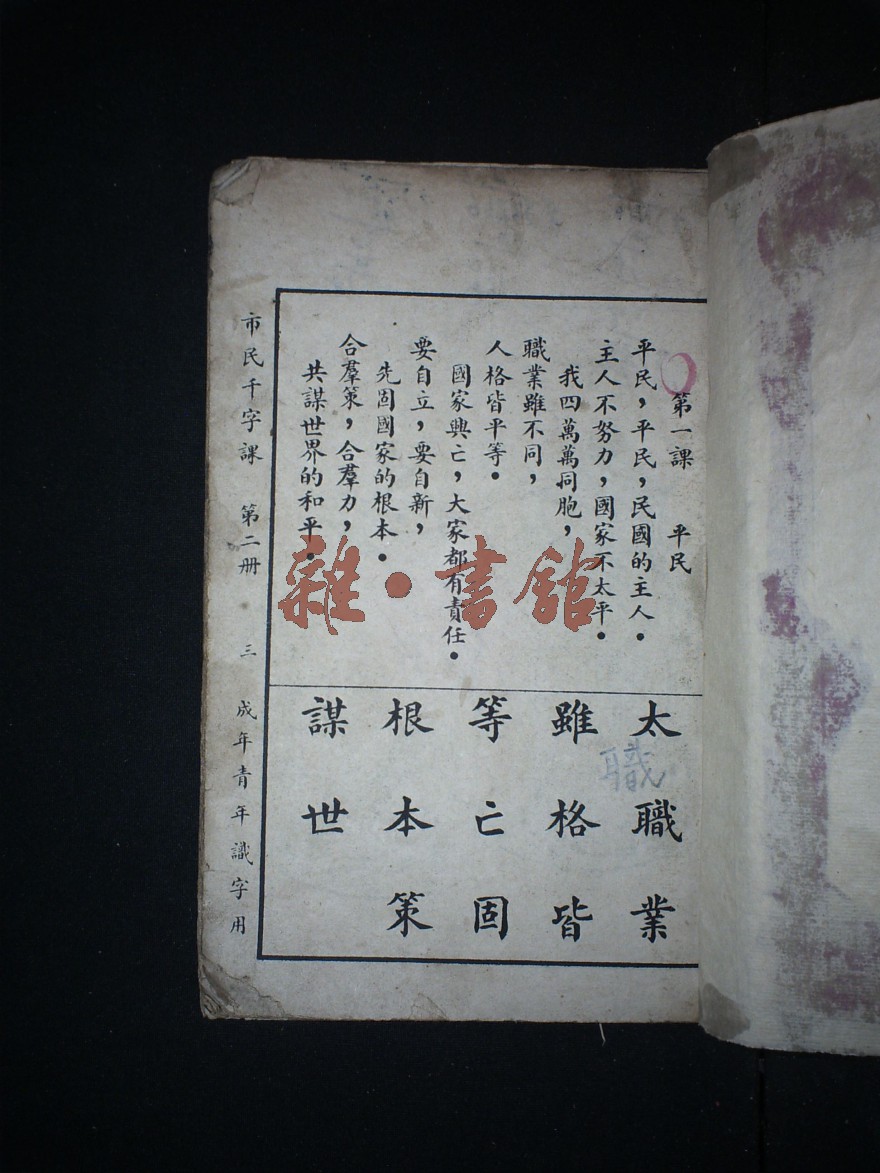 第一課　平民
平民，平民，民國的主人．
主人不努力，國家不太平．
我四萬萬同胞，
職業雖不同，
人格皆平等．
國家興亡，大家都有責任．
要自立，要自新，
先固國家的根本．
合羣策，合羣力，
共謀世界的和平．
太職業
雖格皆
等亡固
根本策
謀世
職
市民千字課　第二册　三　成年青年識字用
雜·書館